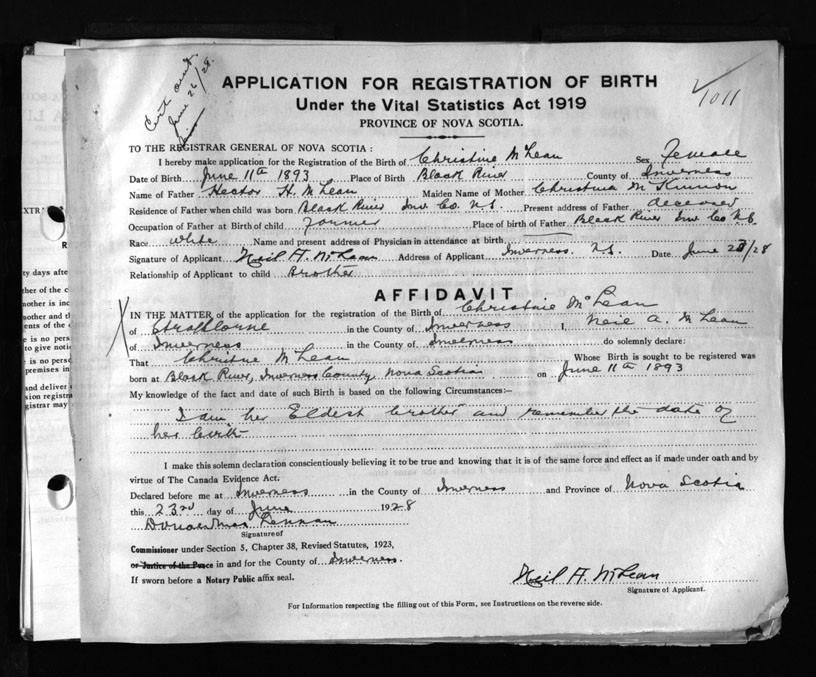 Cert out
June 26/28.
1011
APPLICATION FOR REGISTRATION OF BIRTH
Under the Vital Statistics Act 1919
PROVINCE OF NOVA SCOTIA.
TO THE REGISTRAR GENERAL OF NOVA SCOTIA:
I hereby make application for the Registration of the Birth of Christine McLean Sex Female
Date of Birth June 11th 1893 Place of Birth Black River County of Inverness
Name of Father Hector H. McLean Maiden Name of Mother Christina McKinnon
Residence of Father when child was born Black River Inv Co. N.S. Present address of Father deceased
Occupation of Father at Birth of child Farmer Place of birth of Father Black River Inv Co N.S.
Race white Name and present address of Physician in attendance at birth
Signature of Applicant Neil A. McLean Address of Applicant Inverness. N.S. Date June 23/28
Relationship of Applicant to child Brother
AFFIDAVIT
IN THE MATTER of the application for the registration of the Birth of Christine McLean
of Strathlorne in the County of Inverness I, Neil A. McLean
of Inverness in the County of Inverness do solemnly declare:
That Christine McLean Whose Birth is sought to be registered was
born at Black River, Inverness County, Nova Scotia on June 11th 1893
My knowledge of the fact and date of such Birth is based on the following Circumstances:—
I am her Eldest brother and remember the date of
her birth
I make this solemn declaration conscientiously believing it to be true and knowing that it is of the same force and effect as if made under oath and by
virtue of The Canada Evidence Act.
Declared before me at Inverness in the County of Inverness and Province of Nova Scotia
this 23rd day of June 1928
Donald MacLennan
Signature of
Commissioner under Section 5, Chapter 38, Revised Statutes, 1923,
or Justice of the Peace in and for the County of Inverness.
If sworn before a Notary Public affix seal.
Neil A. McLean
Signature of Applicant.
For Information respecting the filling out of this Form, see Instructions on the reverse side.